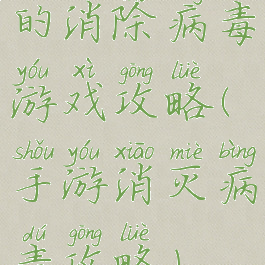 的消除病毒
yóu xì gōng lüè
游戏攻略(
shǒu yóu xiāo miè bìng
手游消灭病
dú gōng lüè
毒攻略)